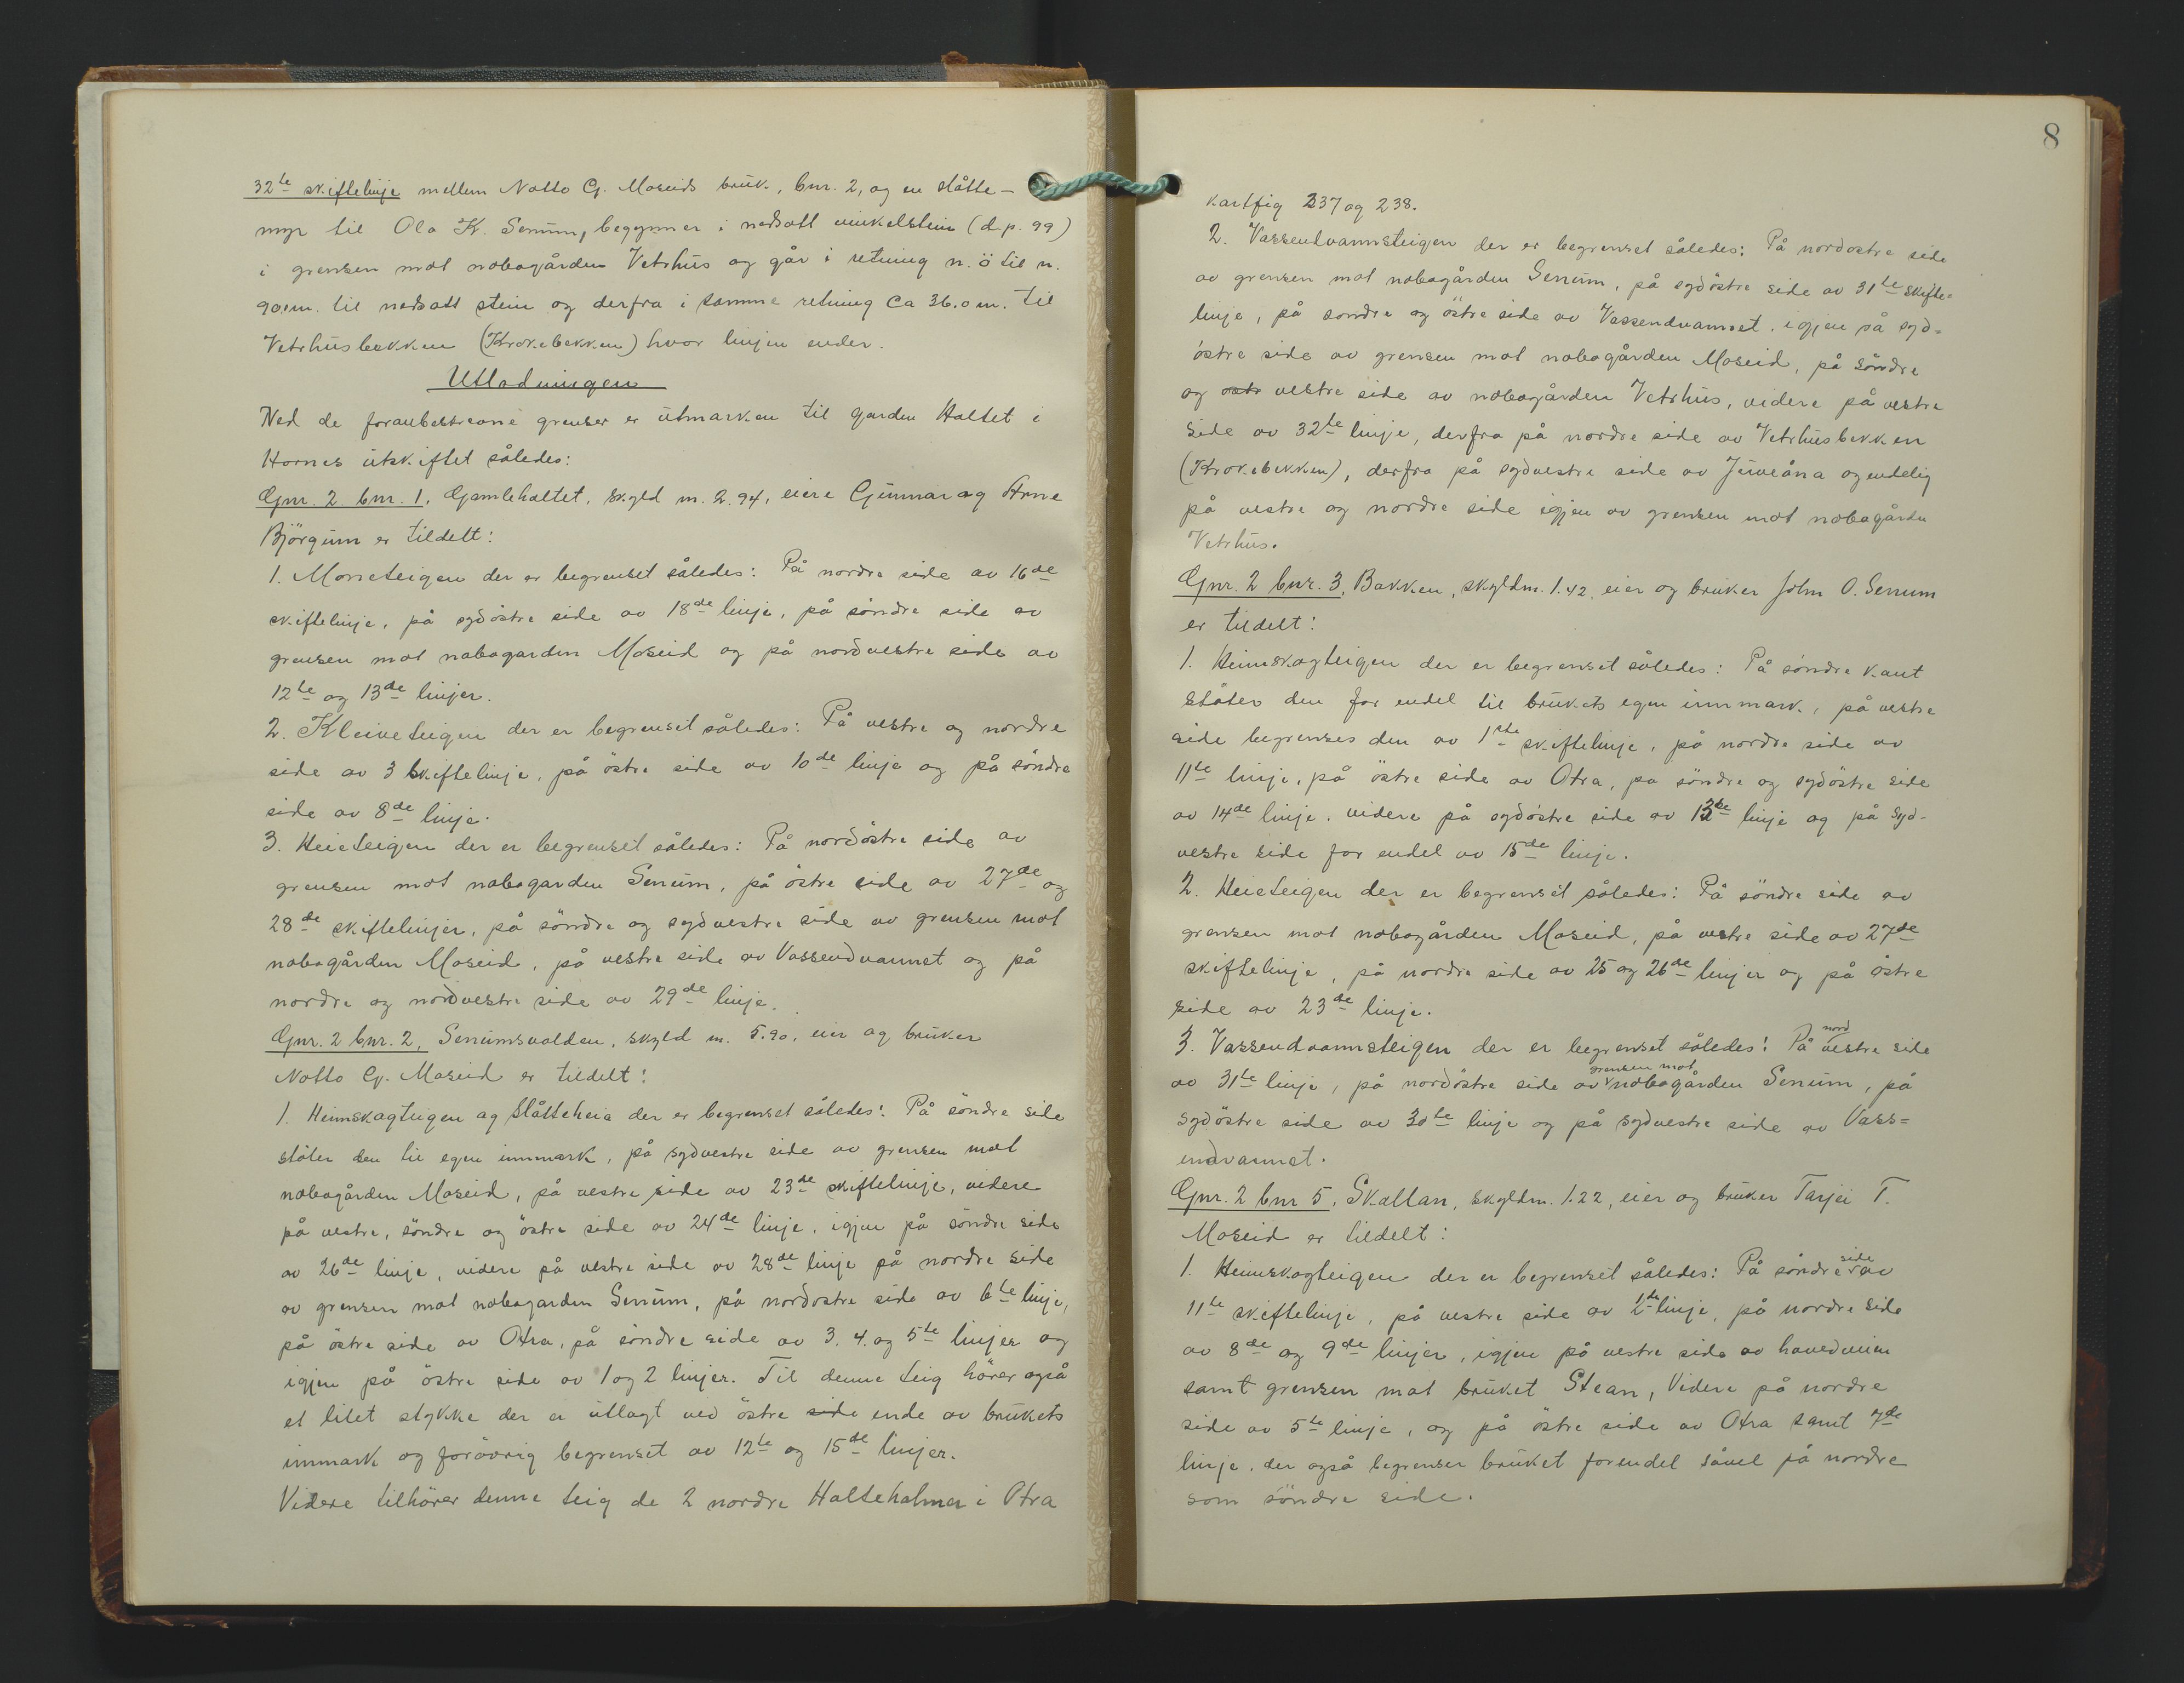 32te skiftelinje mellem Notto G. Moseids bruk, bnr. 2, og en slåtte-
myr til Ola K. Senum, begynner i nedsatt vinkelstein (d.p. 99)
i grensen mot nabogården Vetrhus og går i retning n. ö til n.
90.m. til nedsatt stein og derfra i samme retning ca 36.0 m. til
Vetrhusbekken (Krokebekken) hvor linjen ender.
Utlodningen
Ved de foranbeskrevne grenser er utmarken til garden Haltet i
Hornes utskiftet således:
Gnr. 2 bnr. 1. Gamlehaltet, skyld m. 2.94, eiere Gunnar og Arne
Björgum er tildelt:
1. Moneteigen der er begrenset således: På nordre side av 16de
skiftelinje, på sydöstre side av 18de linje, på söndre side av
grensen mot nabogarden Moseid og på nordvestre side av
12te og 13de linjer.
2. Kleiveteigen der er begrenset således: På vestre og nordre
side av 3 skiftelinje, på östre side av 10de linje og på söndre
side av 8de linje.
3. Heieteigen der er begrenset således: På nordöstre side av
grensen mot nabogarden Senum, på östre side av 27de og
28de skiftelinjer, på söndre og sydvestre side av grensen mot
nabogården Moseid, på vestre side av Vassendvannet og på
nordre og nordvestre side av 29de linje.
Gnr. 2 bnr. 2, Senumsvolden, skyld m. 5.90, eier og bruker
Notto G. Moseid er tildelt:
1. Heimskogteigen og Slåtteheia der er begrenset således: På söndre side
stöter den til egen innmark, på sydvestre side av grensen mot
nabogården Moseid, på vestre side av 23de skiftelinje, videre
på vestre, söndre og östre side av 24de linje, igjen på söndre side
av 26de linje, videre på vestre side av 28de linje på nordre side
av grensen mot nabogarden Senum, på nordostre side av 6te linje,
på östre side av Otra, på söndre side av 3. 4. og 5te linjer og
igjen på östre side av 1 og 2 linjer. Til denne teig hörer også
et litet stykke der er utlagt ved östre side ende av brukets
innmark og forövrig begrenset av 12te og 15de linjer.
Videre tilhörer denne teig de 2 nordre Halteholmer i Otra
8
kartfig 237 og 238.
2. Vassendvannsteigen der er begrenset således: På nordostre side
av grensen mot nabogården Senum, på sydöstre side av 31te skifte=
linje, på sondre og östre side av Vassendvannet, igjen på syd=
östre side av grensen mot nabogården Moseid, på söndre
og ostr vestre side av nabogården Vetrhus, videre på vestre
side av 32te linje, derfra på nordre side av Vetrhusbekken
(Krokebekken), derfra på sydvestre side av Juveåna og endelig
på vestre og nordre side igjen av grensen mot nabogårdn
Vetrhus.
Gnr. 2 bnr. 3, Bakken, skyldm. 1.42, eier og bruker John O. Senum
er tildelt:
1. Heimskogteigen der er begrenset således: På söndre kant
stöter den for endel til brukets egen innmark, på vestre
side begrenses den av 1ste skiftelinje, på nordre side av
11te linje, på östre side av Otra, på söndre og sydöstre side
av 14de linje, videre på sydöstre side av 13de linje og på syd-
vestre side for endel av 15de linje.
2. Heieteigen der er begrenset således: På söndre side av
grensen mot nabogården Moseid, på vestre side av 27de
skiftelinje, på nordre side av 25 og 26de linjer og på östre
side av 23de linje.
3. Vassendvannsteigen der er begrenset således: På nordvestre side
av 31te linje, på nordöstre side av grensen mot nabogården Senum, på
sydöstre side av 30te linje og på sydvestre side av Vass=
endvannet.
Gnr. 2 bnr 5, Skallan, skyldm. 1.22, eier og bruker Tarjei T.
Moseid er tildelt:
1. Heimskogteigen der er begrenset således: På söndre side av
11te skiftelinje, på vestre side av linje, på nordre side
av 8de og 9de linjer, igjen på vestre side av hovedveien
samt grensen mot bruket Stean, Videre på nordre
side av 5te linje, og på östre side av Otra samt 7de
linje, der også begrenser bruket forendel såvel på nordre
som söndre side.